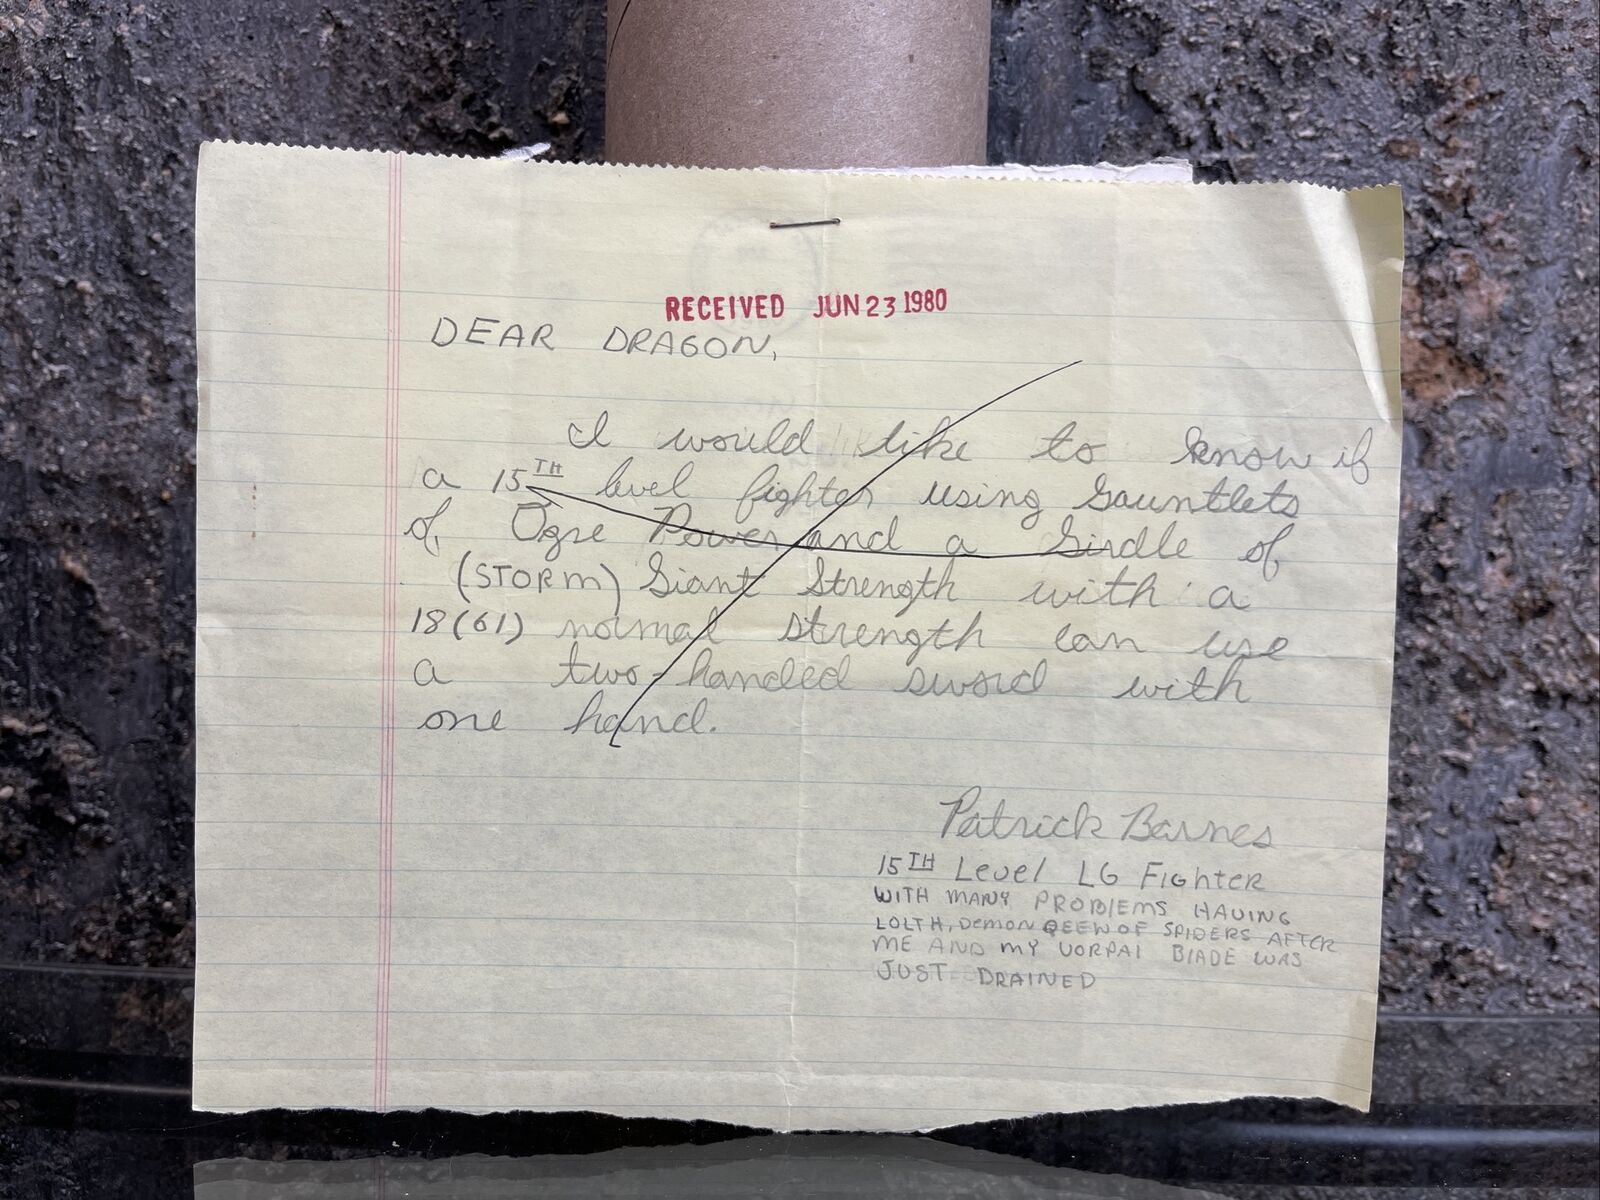 RECEIVED JUN 23 1980
DEAR DRAGON,
I would like to know if
a 15TH level fighter using Gauntlets
of Ogre Power and a Girdle of
(STORM) Giant Strength with a
18(61) normal strength can use
a two-handed sword with
one hand.
Patrick Barnes
15TH Level LG FIGHTER
WITH MANY PROBLEMS HAVING
LOLTH, DEMON QEEN OF SPIDERS AFTER
ME AND MY VORPAL BLADE WAS
JUST DRAINED